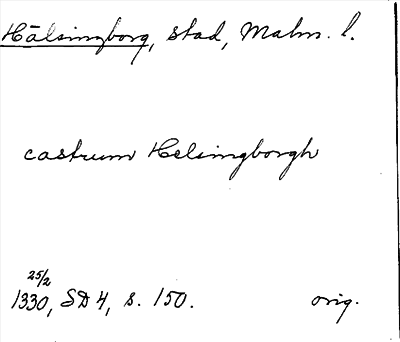 Hälsingborg, stad, Malm. l.
castrum Helsingborgh
25/2
1330, SD 4, s. 150. orig.